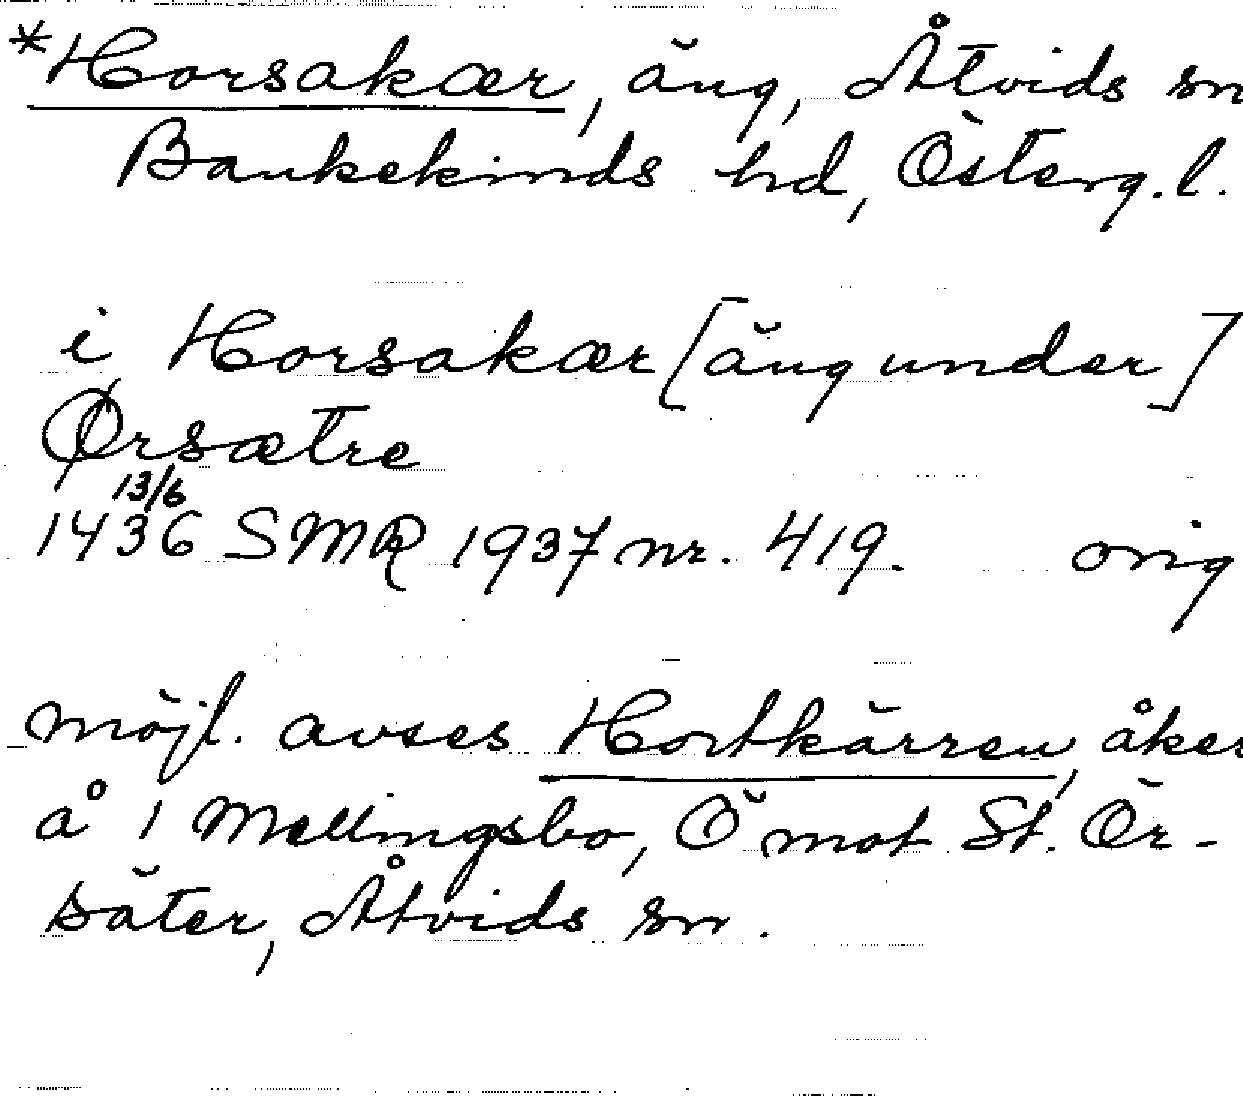 *Horsakær, äng, Åtvids sn
Bankekinds hd, Österg.l.
i Horsakær [äng under]
Ørsætre
13/6
1436 SMR 1937 nr. 419. orig
möjl. avses Hortkärren, åker
å 1 Mellingsbo, Ö mot St. Ör-
säter, Åtvids sn.